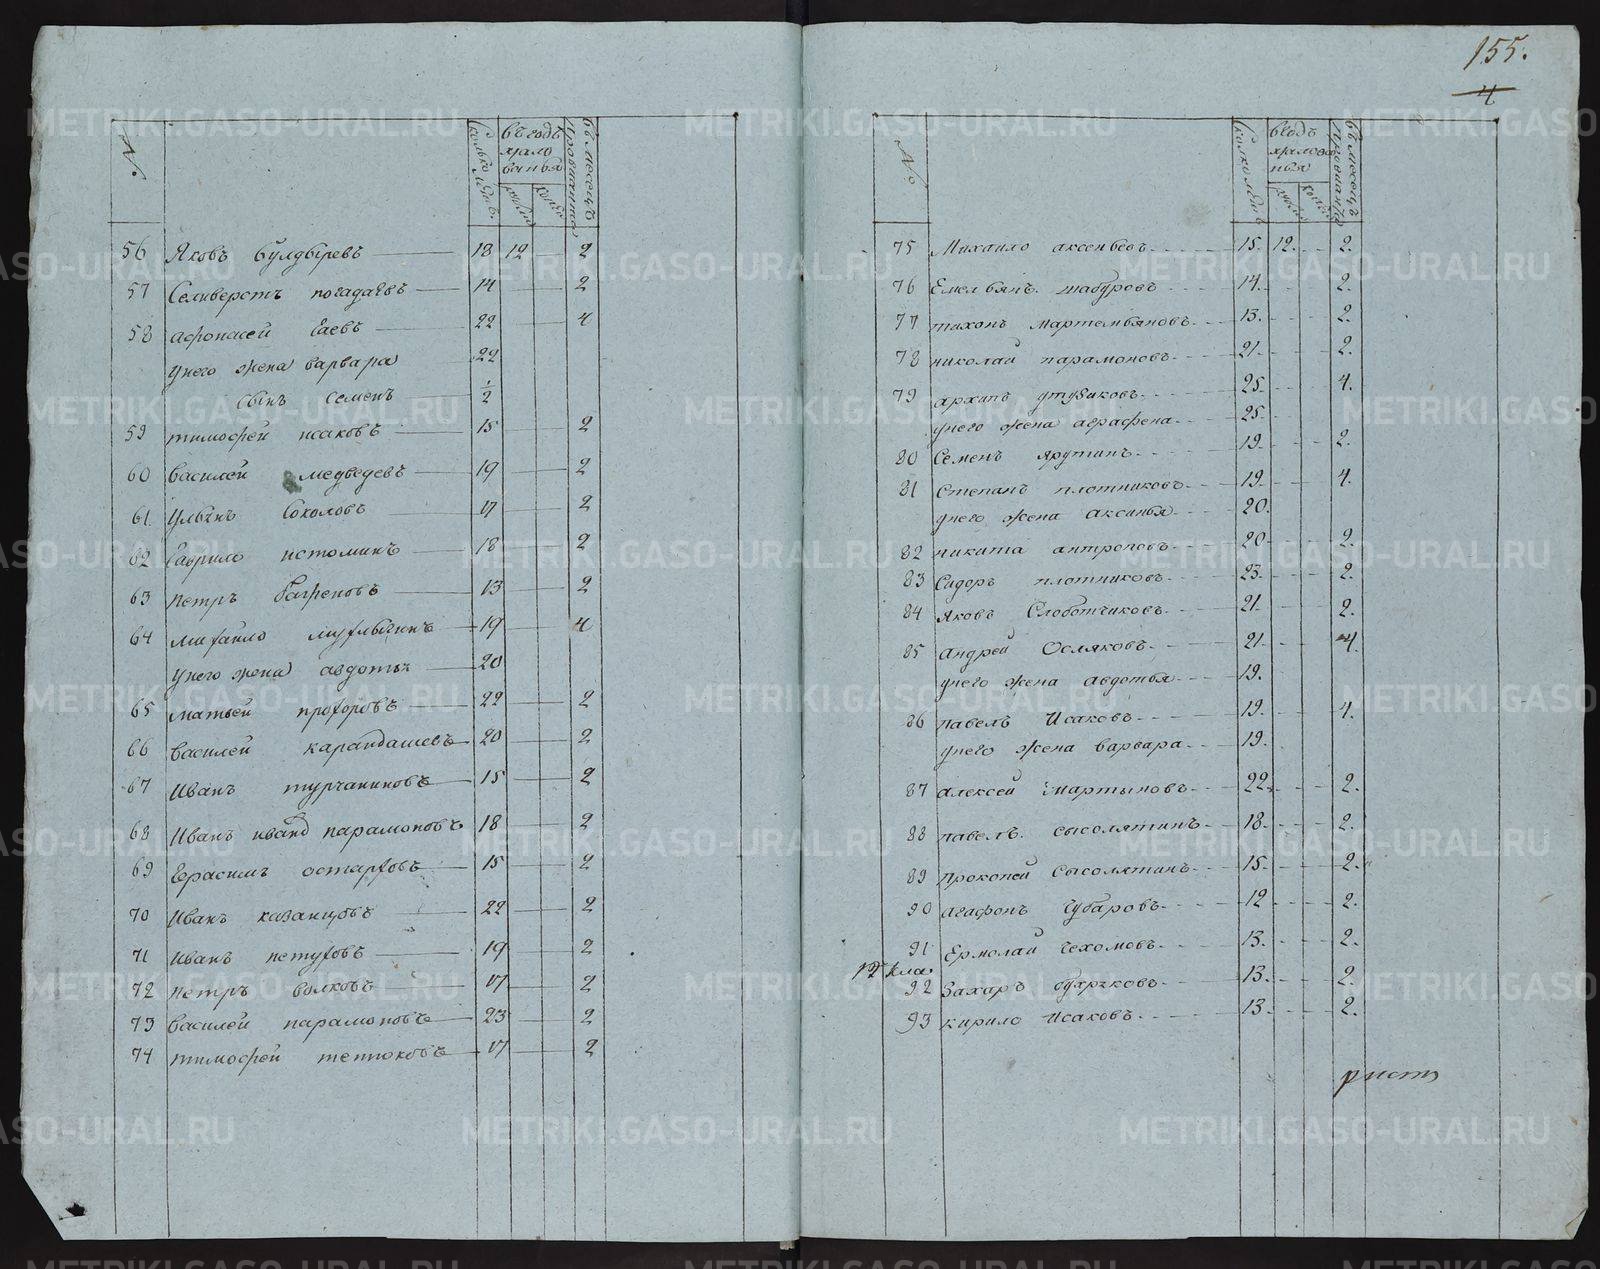 155.
4
№
сколько летъ
въ годъ жалованья
рубли
копеи
въ месецъ провианта
56 Яковъ булдыревъ 18 12 2
57 Селиверстъ погадаевъ 14 2
58 афонасей Гаевъ 22 4
унего жена варвара 22
сынъ семенъ 1/2
59 тимофей исаковъ 15 2
60 василей медведевъ 19 2
61 Ульянъ Соколовъ 17 2
62 Гаврило истоминъ 18 2
63 петръ 13 2
64 михайло 19 4
унего жена авдотья 20
65 матвей прохоровъ 22 2
66 василей карандашевъ 20 2
67 Иванъ турчаниновъ 15 2
68 Иванъ парамоновъ 18 2
69 Герасимъ остарховъ 15 2
70 Иванъ казанцовъ 22 2
71 Иванъ петуховъ 19 2
72 петръ волковъ 17 2
73 василей парамоновъ 23 2
74 тимофей 17 2
№
сколко летъ
вгодъ жалованья
рубли
копеи
въ месецъ провианта
75 Михаило аксеньевъ 15. 12. 2.
76 Емельянъ шабуровъ 14. 2.
77 тихонъ мартемьяновъ 13. 2.
78 николай парамоновъ 21. 2.
79 архипъ 25. 4.
унего жена аграфена 25.
80 Семенъ ярутинъ 19. 2.
81 Степанъ плотниковъ 19. 4.
унего жена аксинья 20.
82 никита антроповъ 20 2.
83 Сидоръ плотниковъ 23. 2.
84 Яковъ Слоботчиковъ 21. 2.
85 андрей Осляковъ 21. 4.
унего жена авдотья 19.
86 павелъ Исаковъ 19. 4.
унего жена варвара 19.
87 алексей мартыновъ 22. 2.
88 павелъ сысолятинъ 18. 2.
89 прокопей Сысолятинъ 15. 2.
90 агафонъ Губаровъ 12 2.
91 Ермолай Чехомовъ 13. 2.
12 кла
92 Захаръ бухряковъ 13. 2.
93 кирило Исаковъ 13. 2.
METRIKI.GASO-URAL.RU